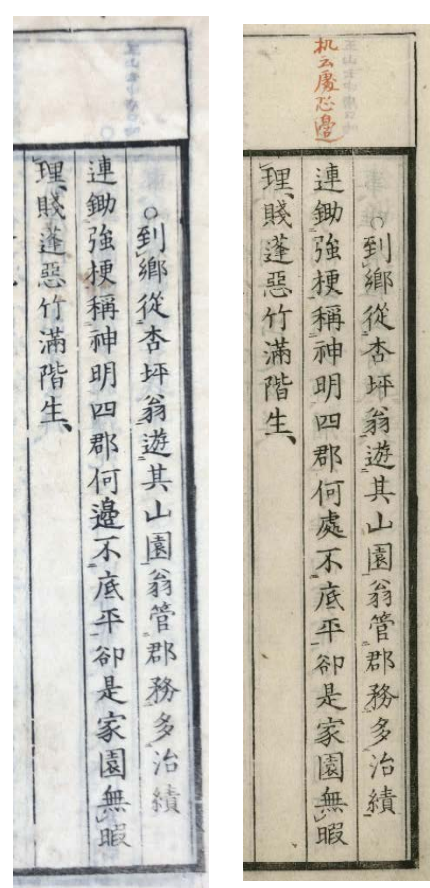 ○到鄉從杏坪翁遊其山園翁管郡務多治績
連鋤強梗稱神明四郡何邊不底平卻是家園無暇
理、賤蓬惡竹滿階生、
机云處恐邊
○到鄉從杏坪翁遊其山園翁管郡務多治績
連鋤強梗稱神明四郡何處不底平卻是家園無暇
理、賤蓬惡竹滿階生、